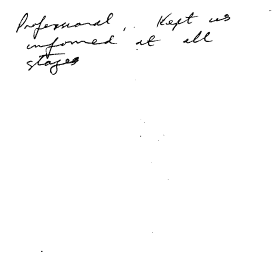 Professional, . Kept us
informed at all
stages